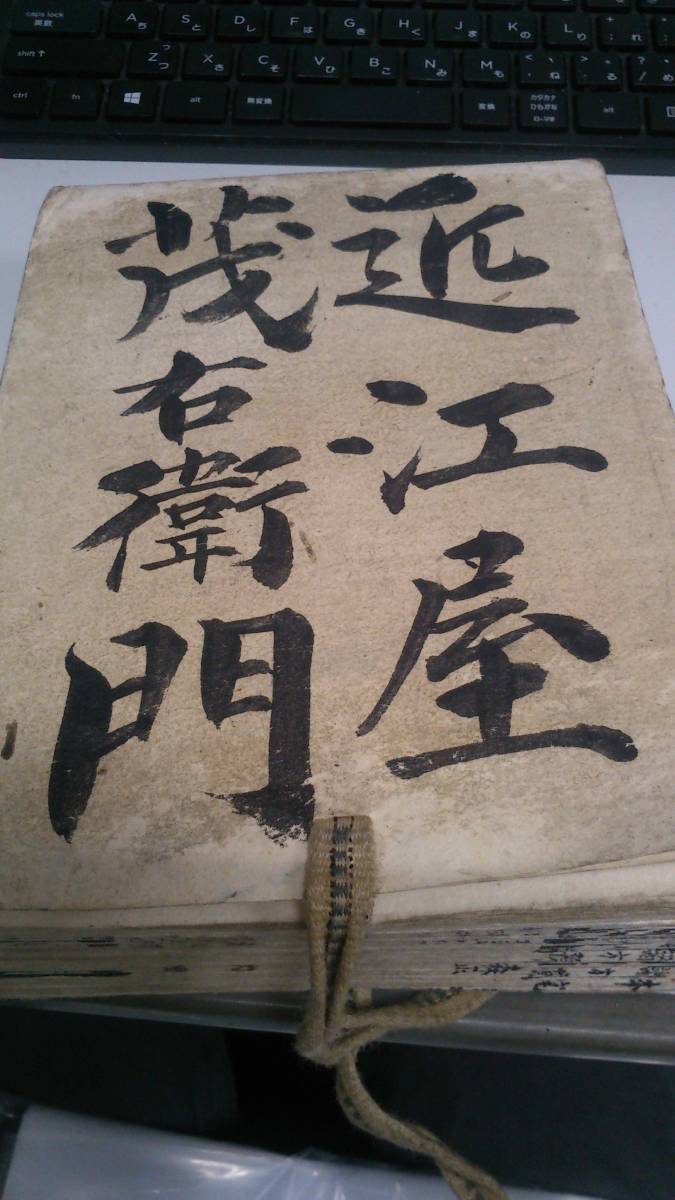 近江屋
茂右衛門
caps lock
英数
A ち
S と
D し
F は
G き
H く
J ま
K の
L り
shift
Z つ っ
X さ
C そ
V ひ
B こ
N み
M も
ctrl
fn
alt
無変換
変換
カタカナ
ひらがな
ローマ字
alt